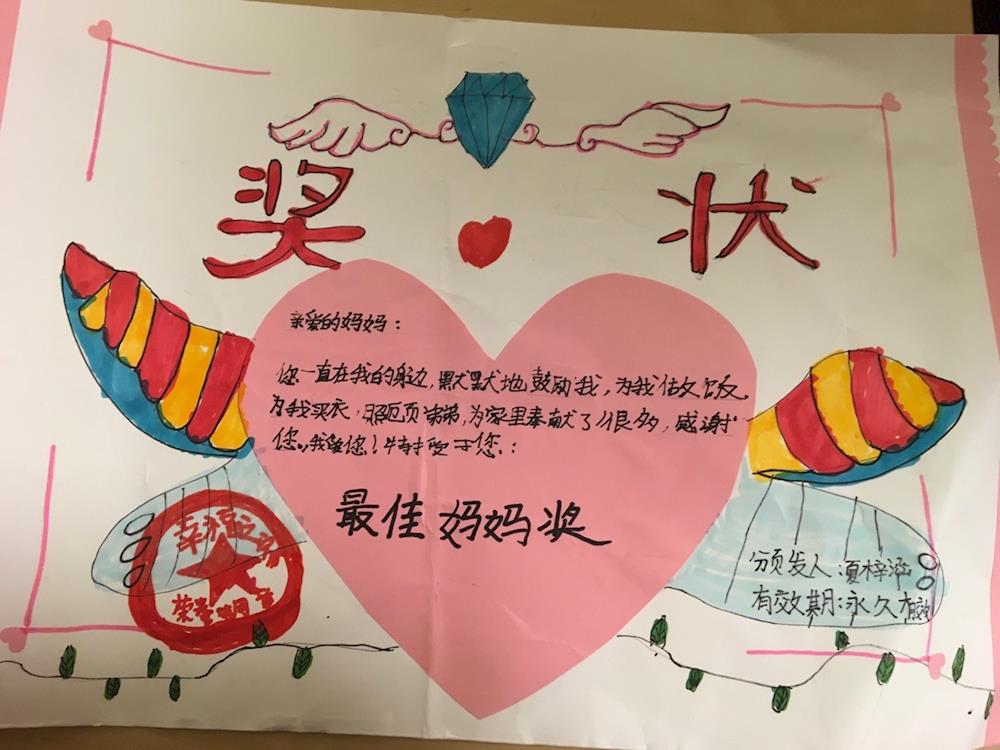 奖状
亲爱的妈妈：
您一直在我的身边，默默地鼓励我，为我做饭，
为我买衣，照顾弟弟，为家里奉献了很多，感谢
您。我爱您！特授予您：
最佳妈妈奖
幸福
荣誉
颁发人：夏梓涵
有效期：永久有效